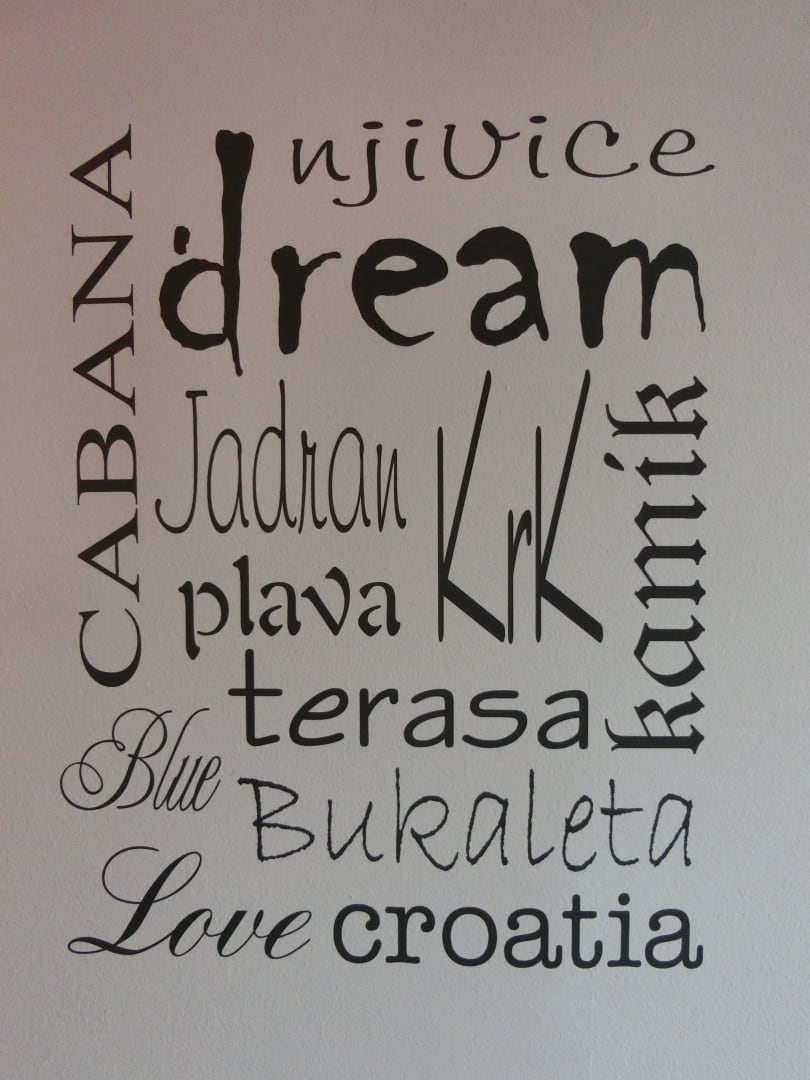 CABANA
njivice
dream
Jadran
KrK
kamik
plava
terasa
Blue
Bukaleta
Love
croatia